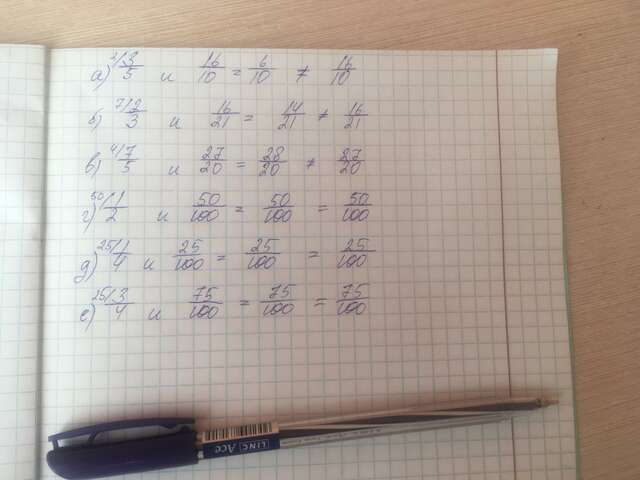 а) 2/ 3/5 и 16/10 = 6/10 ≠ 16/10
б) 7/ 2/3 и 16/21 = 14/21 ≠ 16/21
в) 4/ 7/5 и 27/20 = 28/20 ≠ 27/20
г) 50/ 1/2 и 50/100 = 50/100 = 50/100
д) 25/ 1/4 и 25/100 = 25/100 = 25/100
е) 25/ 3/4 и 75/100 = 75/100 = 75/100
LINC Ace